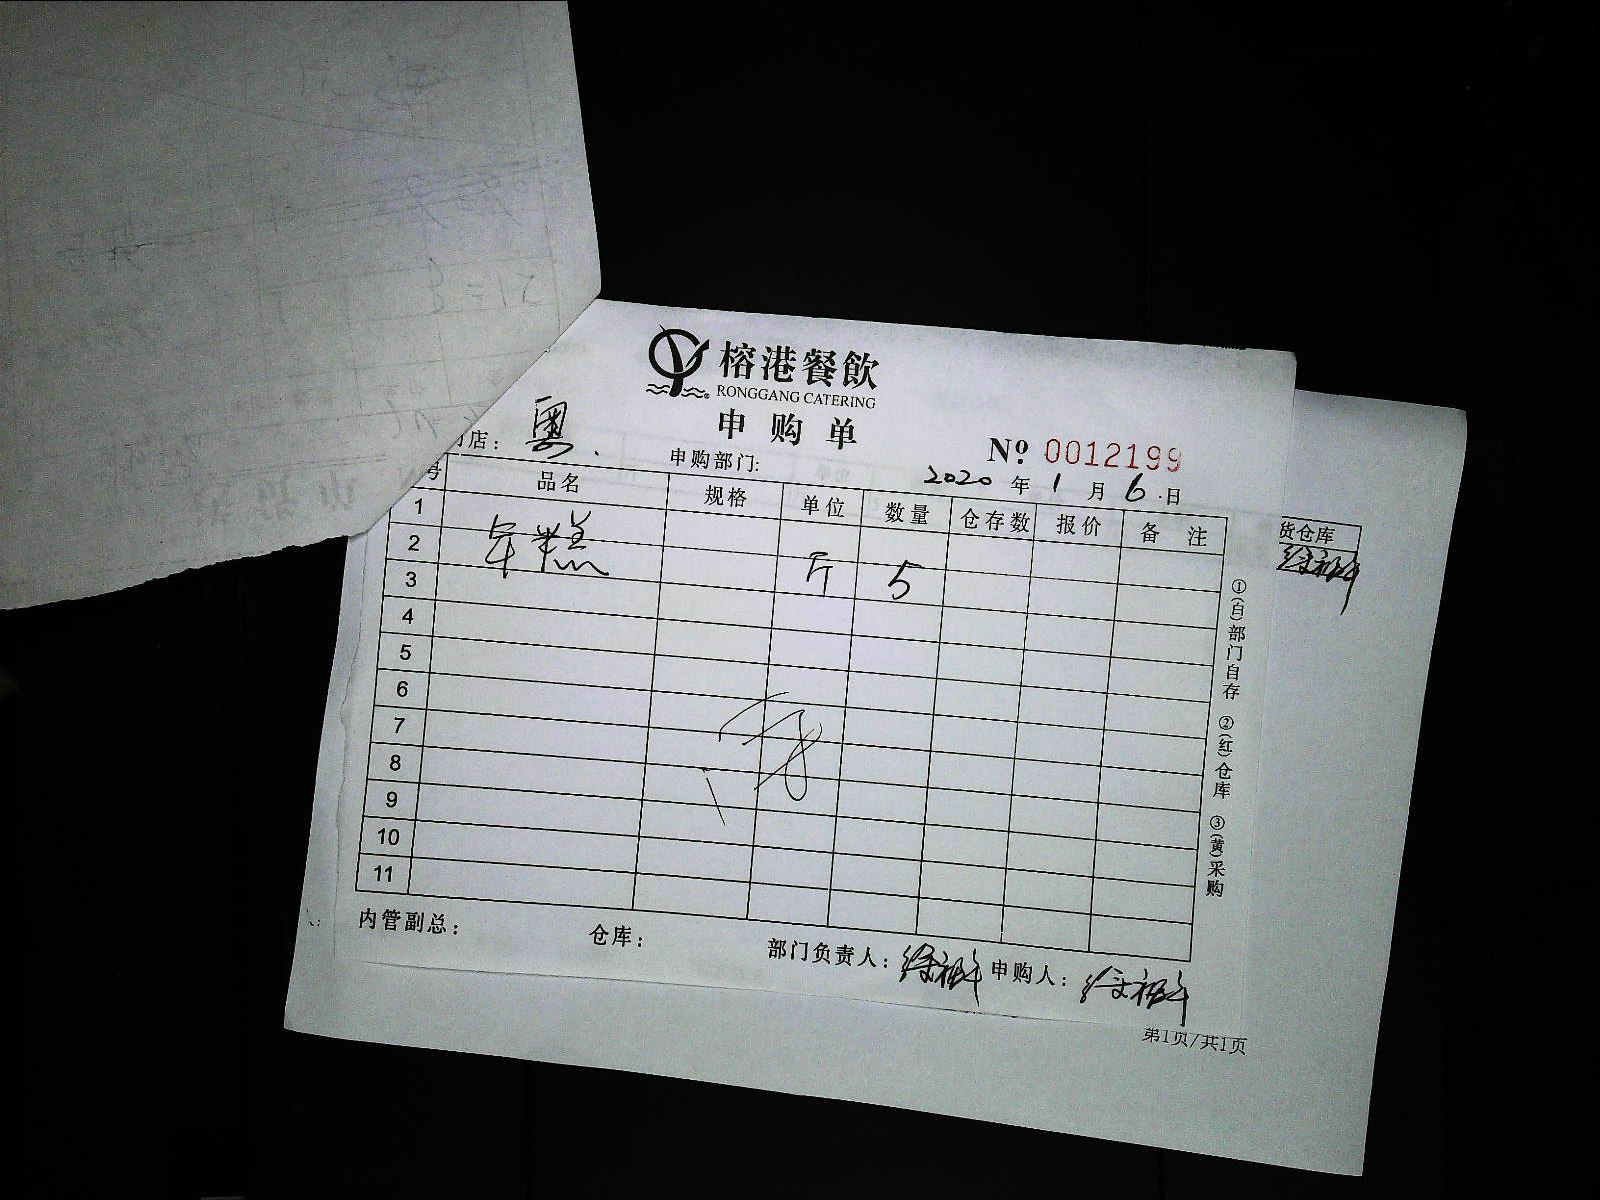 榕港餐飲
RONGGANG CATERING
申购单
店: 粤.
申购部门:
Nº 0012199
2020 年 1 月 6 日
号 品名 规格 单位 数量 仓存数 报价 备 注
1
2 年糕 斤 5
3
4
5
6
7
8
9
10
11
内管副总: 仓库: 部门负责人: 申购人:
①(白)部门自存 ②(红)仓库 ③(黄)采购
货仓库
第1页/共1页